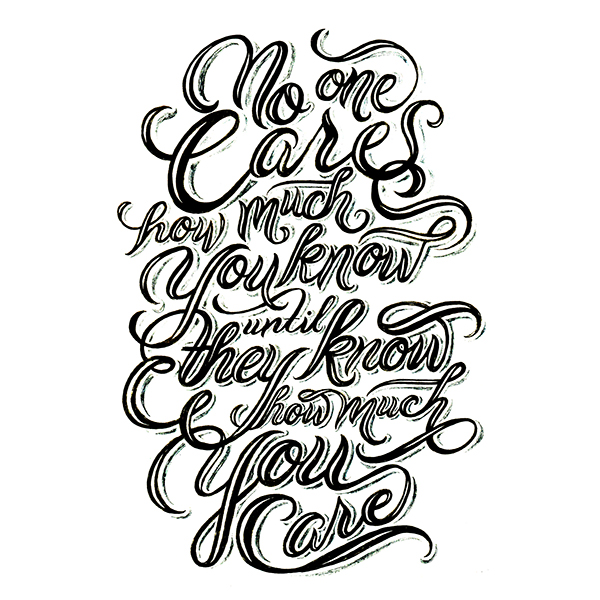 No one
Cares
how much
You know
until
they know
how much
You
Care